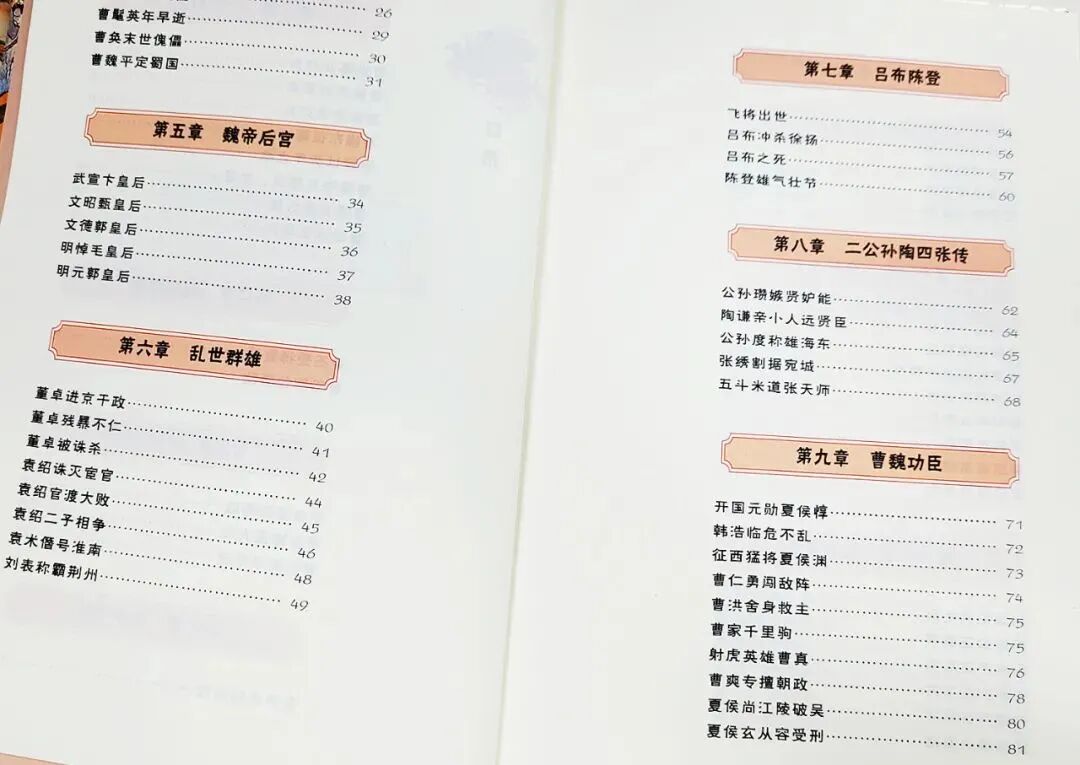 26
曹髦英年早逝 29
曹奂末世傀儡 30
曹魏平定蜀国 31
第五章 魏帝后宫
武宣卞皇后 34
文昭甄皇后 35
文德郭皇后 36
明悼毛皇后 37
明元郭皇后 38
第六章 乱世群雄
董卓进京干政 40
董卓残暴不仁 41
董卓被诛杀 42
袁绍诛灭宦官 44
袁绍官渡大败 45
袁绍二子相争 46
袁术僭号淮南 48
刘表称霸荆州 49
第七章 吕布陈登
飞将出世 54
吕布冲杀徐扬 56
吕布之死 57
陈登雄气壮节 60
第八章 二公孙陶四张传
公孙瓒嫉贤妒能 62
陶谦亲小人远贤臣 64
公孙度称雄海东 65
张绣割据宛城 67
五斗米道张天师 68
第九章 曹魏功臣
开国元勋夏侯惇 71
韩浩临危不乱 72
征西猛将夏侯渊 73
曹仁勇闯敌阵 74
曹洪舍身救主 75
曹家千里驹 75
射虎英雄曹真 76
曹爽专擅朝政 78
夏侯尚江陵破吴 80
夏侯玄从容受刑 81